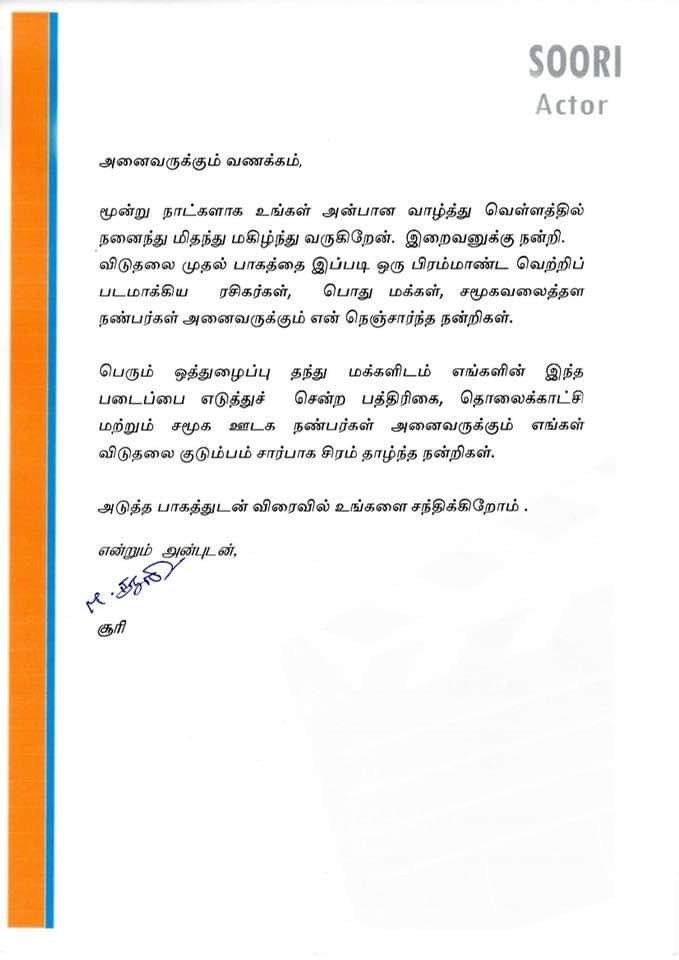 SOORI
Actor
அனைவருக்கும் வணக்கம்,
மூன்று நாட்களாக உங்கள் அன்பான வாழ்த்து வெள்ளத்தில்
நனைந்து மிதந்து மகிழ்ந்து வருகிறேன். இறைவனுக்கு நன்றி.
விடுதலை முதல் பாகத்தை இப்படி ஒரு பிரம்மாண்ட வெற்றிப்
படமாக்கிய ரசிகர்கள், பொது மக்கள், சமூகவலைத்தள
நண்பர்கள் அனைவருக்கும் என் நெஞ்சார்ந்த நன்றிகள்.
பெரும் ஒத்துழைப்பு தந்து மக்களிடம் எங்களின் இந்த
படைப்பை எடுத்துச் சென்ற பத்திரிகை, தொலைக்காட்சி
மற்றும் சமூக ஊடக நண்பர்கள் அனைவருக்கும் எங்கள்
விடுதலை குடும்பம் சார்பாக சிரம் தாழ்ந்த நன்றிகள்.
அடுத்த பாகத்துடன் விரைவில் உங்களை சந்திக்கிறோம் .
என்றும் அன்புடன்,
சூரி